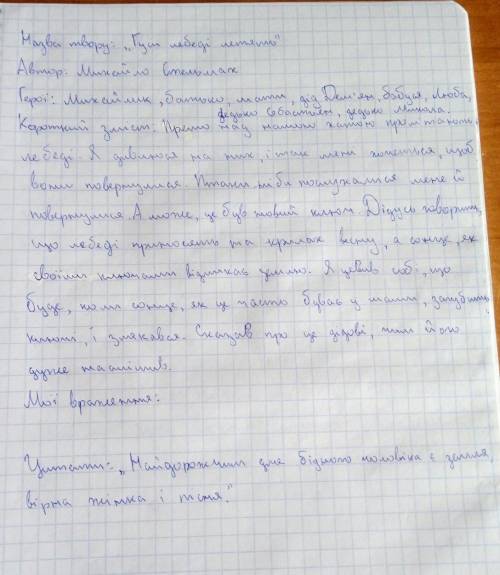 Назва твору: „Гуси лебеді летять"
Автор: Михайло Стельмах
Герої: Михайлик, батько, мати, дід Дем'ян, бабуся, Люба,
дядько Себастіян, дядько Микола.
Короткий зміст: Прямо над нашою хатою пролітають
лебеді. Я дивлюся на них, і так мені хочеться, щоб
вони повернулися. Птахи ніби послухалися мене й
повернулися. А може, це був новий ключ. Дідусь говорить,
що лебеді приносять на крилах весну, а сонце, як
своїми ключами відмикає землю. Я уявив собі, що
буде, коли сонце, як це часто буває у мати, загубить
ключі, і злякався. Сказав про це дідові, чим його
дуже насмішив.
Мої враження:
Цитати: „Найдорожчим для бідного чоловіка є земля,
вірна жінка і пісня."